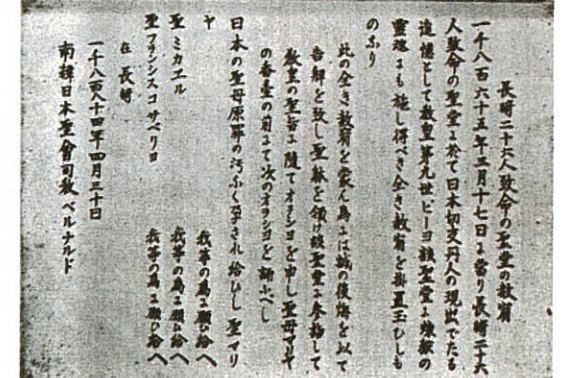 長崎二十六人致命の聖堂の教宥
一千八百六十五年三月十七日ニ當り長崎二十六
人致命の聖堂ニ於て日本切支丹人の現出でたる
追憶として教皇第九世ピーヨ該聖堂ニ煉獄の
靈魂ニも施し得べき全き教宥を掛置玉ひしも
のふり
此の全き教宥を蒙ん爲ニは誠の後悔を以て
告解を致し聖躰を領け該聖堂ニ参詣して
教皇の聖旨ニ隨てオラシヨを申し聖母マリヤ
の香臺の前ニて次のオラシヨを誦ふべし
日本の聖母原罪の汚ふく孕され給ひし聖マリ
ヤ 我等の爲ニ願ひ給へ
聖ミカエル 我等の爲ニ願ひ給へ
聖フランシスコサベリヨ 我等の爲ニ願ひ給へ
在長崎
一千八百八十四年四月三十日
南緯日本聖會司教ベルナルド